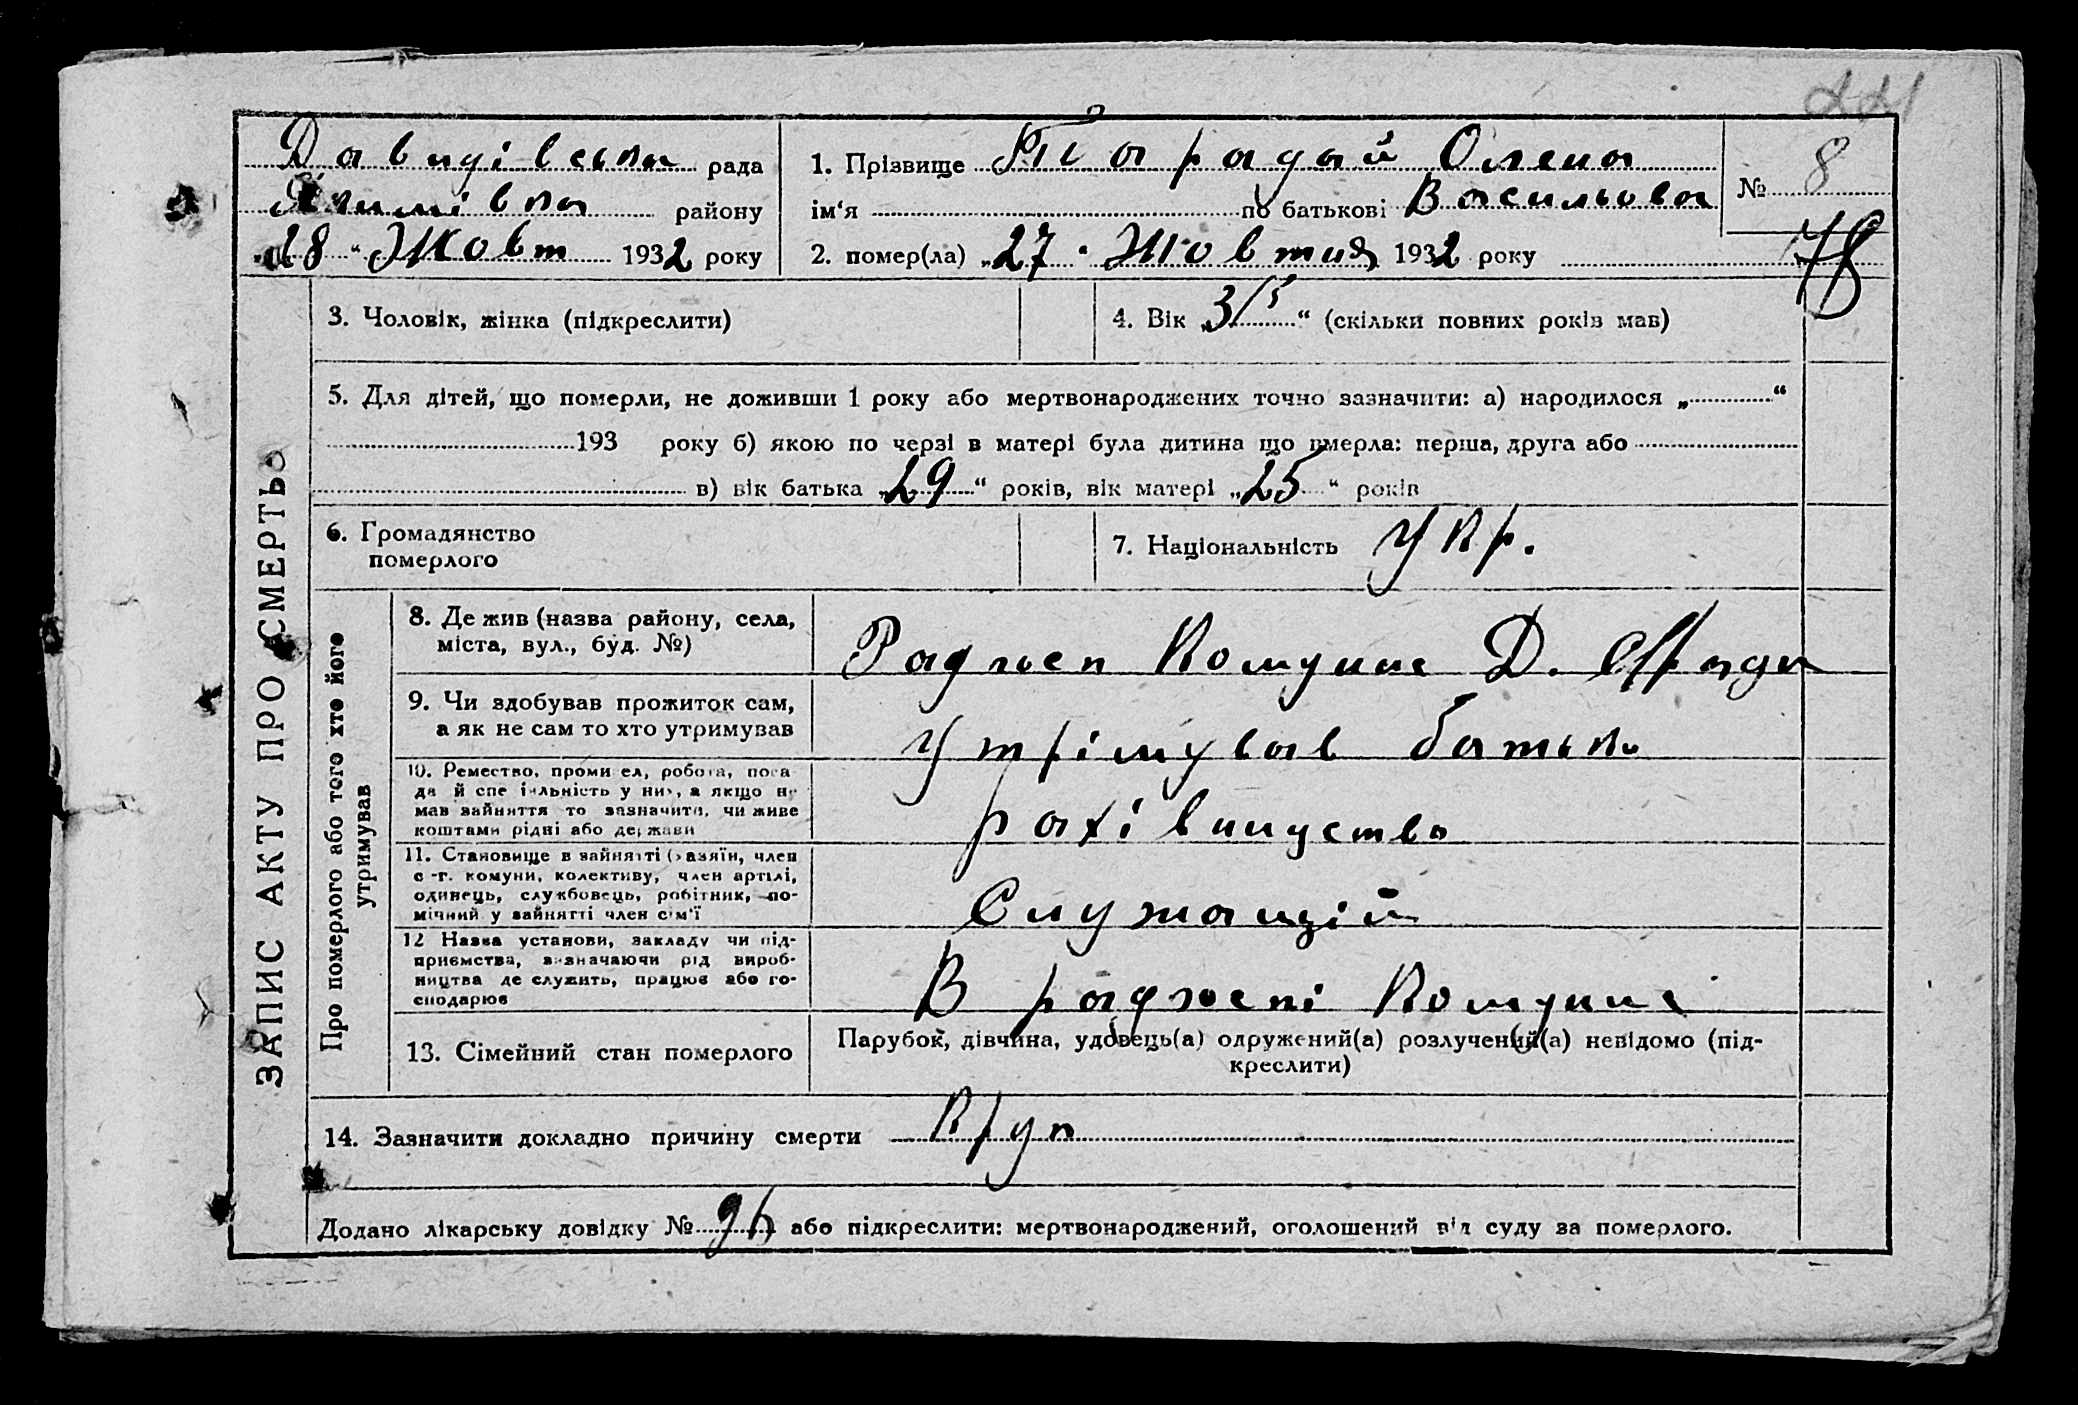 Давидівська рада
Якимівка району
„28“ Жовт 1932 року
1. Прізвище Тарадай Олена
ім‘я по батькові Васильова
2. помер(ла) „27“ Жовтня 1932 року
№ 8
78
ЗАПИС АКТУ ПРО СМЕРТЬ
3. Чоловік, жінка (підкреслити)
4. Вік „3/5“ (скільки повних років мав)
5. Для дітей, що померли, не доживши 1 року або мертвонароджених точно зазначити: а) народилося „ “
193 року б) якою по черзі в матері була дитина що вмерла: перша, друга або
в) вік батька „29“ років, вік матері „25“ років
6. Громадянство
померлого
7. Національність Укр.
Про померлого або того хто його
утримував
8. Де жив (назва району, села,
міста, вул., буд. №)
Радгосп Комуне Д.
9. Чи здобував прожиток сам,
а як не сам то хто утримував
Утрімував батько
10. Ремество, промисел, робота, поса-
да й спеціяльність у них, а якщо не
мав зайняття то зазначити, чи живе
коштами рідні або держави
рахівництво
11. Становище в зайнятті (хазяїн, член
с.-г. комуни, колективу, член артілі,
одинець, службовець, робітник, по-
мічний у зайнятті член сім‘ї
Служащій
12 Назва установи, закладу чи під-
приємства, визначаючи рід вироб-
ництва де служить, працює або го-
сподарює
В радгоспі Комуне
13. Сімейний стан померлого
Парубок, дівчина, удовець(а) одружений(а) розлучений(а) невідомо (під-
креслити)
14. Зазначити докладно причину смерти Круп
Додано лікарську довідку № або підкреслити: мертвонароджений, оголошений від суду за померлого.